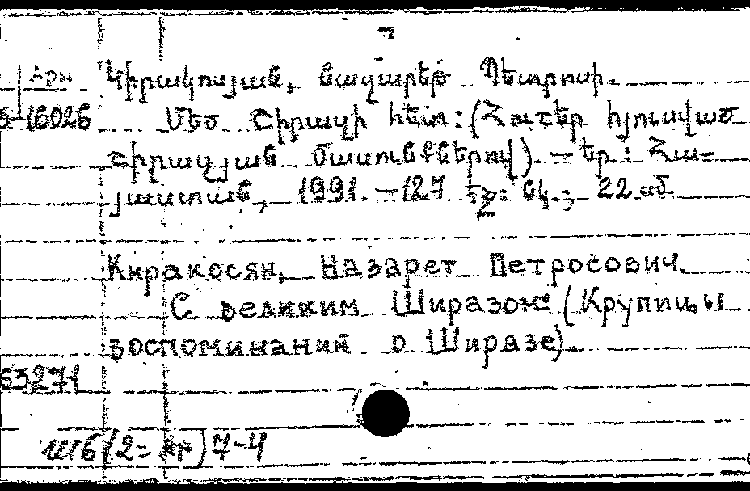 Կիրակոսյան, Նազարեթ Պետրոսի.
5-16026 Մեծ Շիրազի հետ: (Հուշեր հյուսված
շիրազյան մասունքներով) – Եր: Հա-
յաստան, 1991. – 127 էջ: նկ.; 22 սմ.
Киракосян, Назарет Петросович.
С великим Ширазом: (Крупицы
воспоминаний о Ширазе).
63271
Ш6(2=Ар)7-4